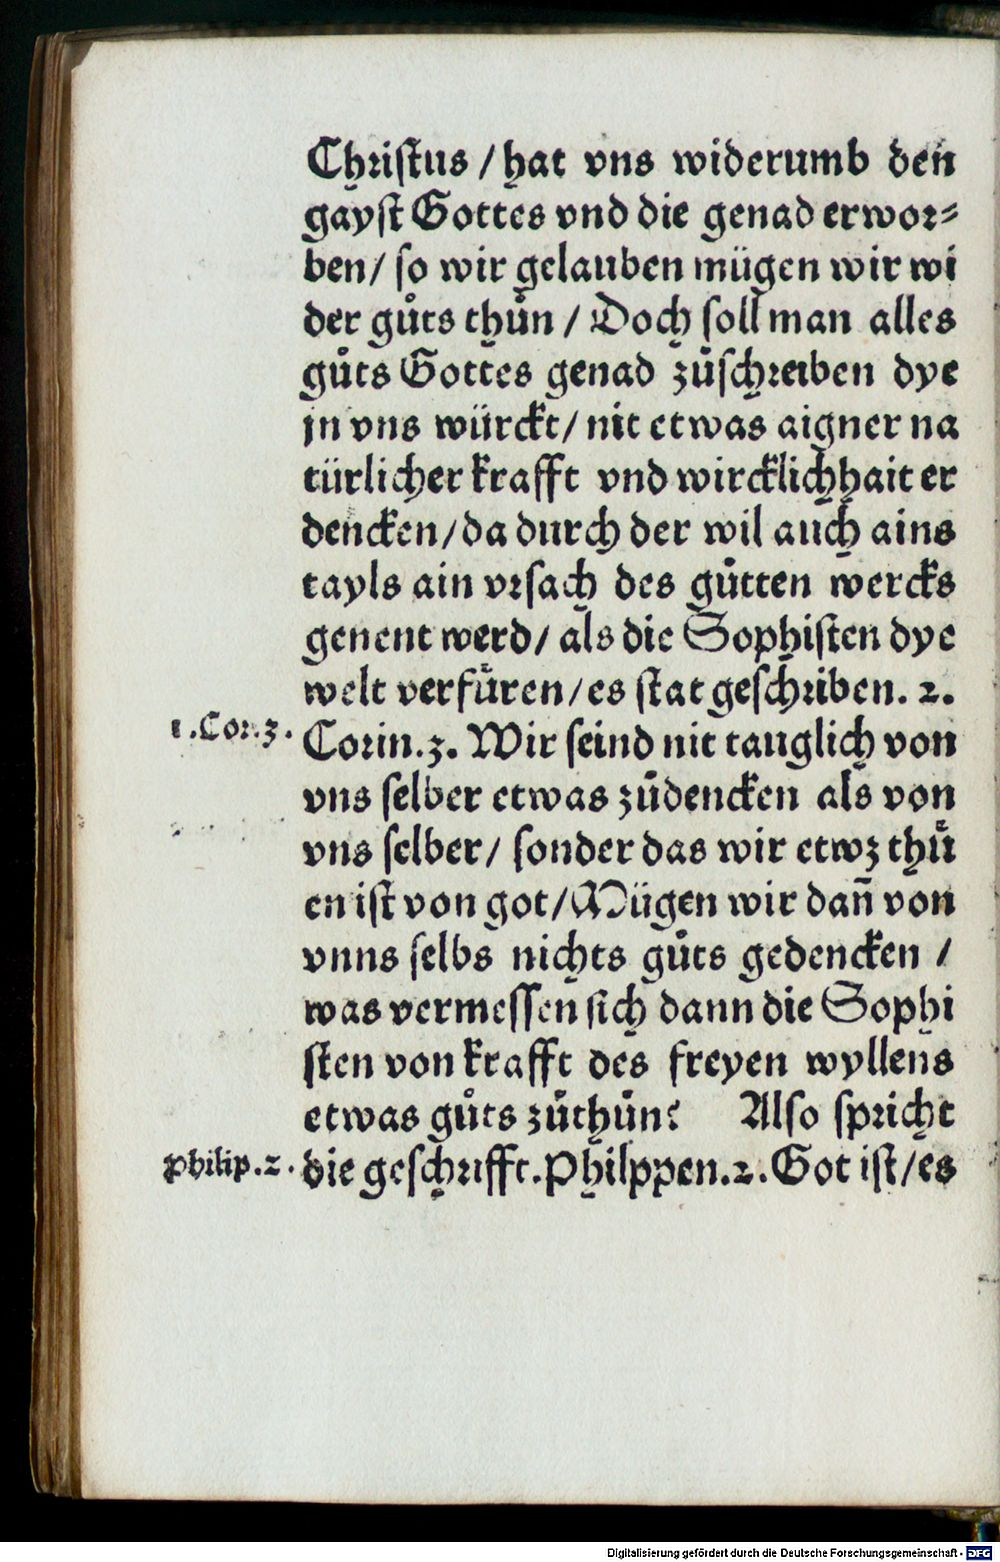 Christus / hat vns widerumb den
gayst Gottes vnd die genad erwor⸗
ben / so wir gelauben mügen wir wi
der gůts thůn / Doch soll man alles
gůts Gottes genad zůschreiben dye
jn vns würckt / nit etwas aigner na
türlicher krafft vnd wircklichhait er
dencken / da durch der wil auch ains
tayls ain vrsach des gůtten wercks
genent werd / als die Sophisten dye
welt verfůren / es stat geschriben. 2.
1. Cor. 3. Corin. 3. Wir seind nit tauglich von
vns selber etwas zůdencken als von
vns selber / sonder das wir etwz thů
en ist von got / Mügen wir dañ von
vnns selbs nichts gůts gedencken /
was vermessen sich dann die Sophi
sten von krafft des freyen wyllens
etwas gůts zůthůn? Also spricht
Philip. 2. die geschrifft. Philppen. 2. Got ist / es
Digitalisierung gefördert durch die Deutsche Forschungsgemeinschaft - DFG